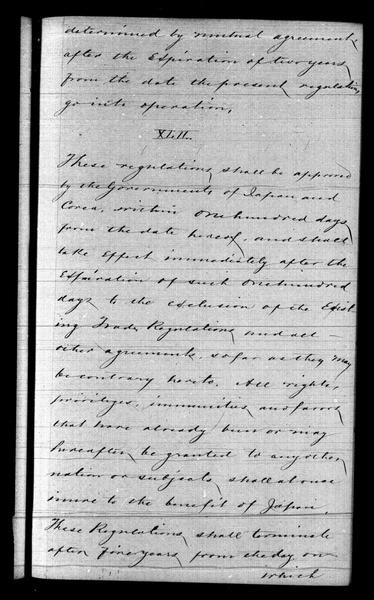 determined by mutual agreement
after the Expiration of two years
from the date the present regulations
go into operation.
XLII.
These regulations shall be approved
by the Governments of Japan and
Corea, within One hundred days
from the date hereof, and shall
take Effect immediately after the
Expiration of such One hundred
days to the exclusion of the Exist
ing Trade Regulations and all
other agreements, so far as they may
be contrary hereto. All rights,
privileges, immunities and favors
that have already been or may
hereafter be granted to any other
nation or subjects, shall at once
inure to the benefit of Japan.
These Regulations shall terminate
after five years from the day on
which